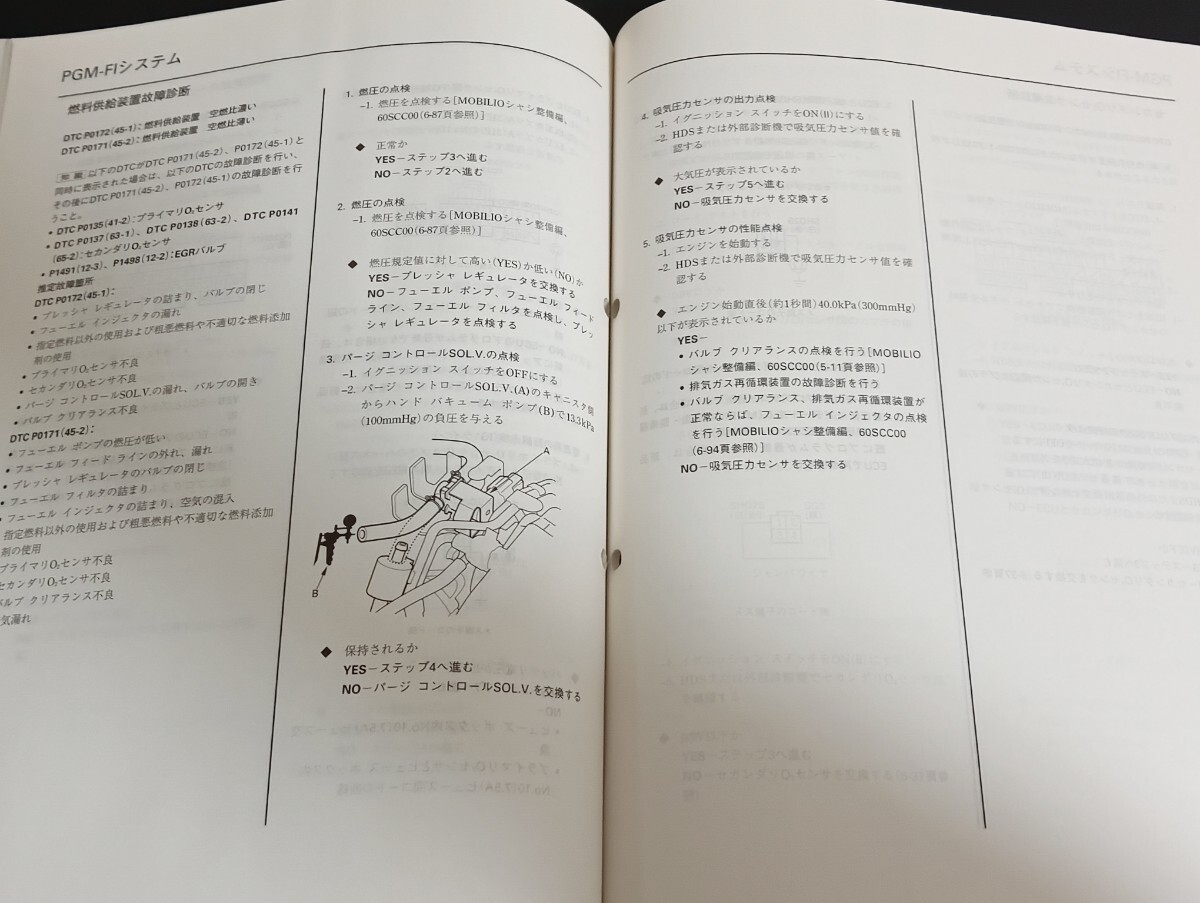 PGM-FIシステム
燃料供給装置故障診断
DTC P0172(45-1)：燃料供給装置 空燃比濃い
DTC P0171(45-2)：燃料供給装置 空燃比薄い
知識 以下のDTCがDTC P0171(45-2)、P0172(45-1)と
同時に表示された場合は、以下のDTCの故障診断を行い、
その後にDTC P0171(45-2)、P0172(45-1)の故障診断を行
うこと。
• DTC P0135(41-2)：プライマリO₂センサ
• DTC P0137(63-1)、DTC P0138(63-2)、DTC P0141
(65-2)：セカンダリO₂センサ
• P1491(12-3)、P1498(12-2)：EGRバルブ
推定故障箇所
DTC P0172(45-1)：
• プレッシャ レギュレータの詰まり、バルブの閉じ
• フューエル インジェクタの漏れ
• 指定燃料以外の使用および粗悪燃料や不適切な燃料添加
剤の使用
• プライマリO₂センサ不良
• セカンダリO₂センサ不良
• パージ コントロールSOL.V.の漏れ、バルブの開き
• バルブ クリアランス不良
DTC P0171(45-2)：
• フューエル ポンプの燃圧が低い
• フューエル フィード ラインの外れ、漏れ
• プレッシャ レギュレータのバルブの閉じ
• フューエル フィルタの詰まり
• フューエル インジェクタの詰まり、空気の混入
指定燃料以外の使用および粗悪燃料や不適切な燃料添加
剤の使用
プライマリO₂センサ不良
セカンダリO₂センサ不良
バルブ クリアランス不良
気漏れ
1. 燃圧の点検
-1. 燃圧を点検する[MOBILIOシャシ整備編、
60SCC00(6-87頁参照)]
◆ 正常か
YES－ステップ3へ進む
NO－ステップ2へ進む
2. 燃圧の点検
-1. 燃圧を点検する[MOBILIOシャシ整備編、
60SCC00(6-87頁参照)]
◆ 燃圧規定値に対して高い(YES)か低い(NO)か
YES－プレッシャ レギュレータを交換する
NO－フューエル ポンプ、フューエル フィード
ライン、フューエル フィルタを点検し、プレッ
シャ レギュレータを点検する
3. パージ コントロールSOL.V.の点検
-1. イグニッション スイッチをOFFにする
-2. パージ コントロールSOL.V.(A)のキャニスタ側
からハンド バキューム ポンプ(B)で13.3kPa
(100mmHg)の負圧を与える
A
B
◆ 保持されるか
YES－ステップ4へ進む
NO－パージ コントロールSOL.V.を交換する
4. 吸気圧力センサの出力点検
-1. イグニッション スイッチをON(II)にする
-2. HDSまたは外部診断機で吸気圧力センサ値を確
認する
◆ 大気圧が表示されているか
YES－ステップ5へ進む
NO－吸気圧力センサを交換する
5. 吸気圧力センサの性能点検
-1. エンジンを始動する
-2. HDSまたは外部診断機で吸気圧力センサ値を確
認する
◆ エンジン始動直後(約1秒間)40.0kPa(300mmHg)
以下が表示されているか
YES－
• バルブ クリアランスの点検を行う[MOBILIO
シャシ整備編、60SCC00(5-11頁参照)]
• 排気ガス再循環装置の故障診断を行う
• バルブ クリアランス、排気ガス再循環装置が
正常ならば、フューエル インジェクタの点検
を行う[MOBILIOシャシ整備編、60SCC00
(6-94頁参照)]
NO－吸気圧力センサを交換する